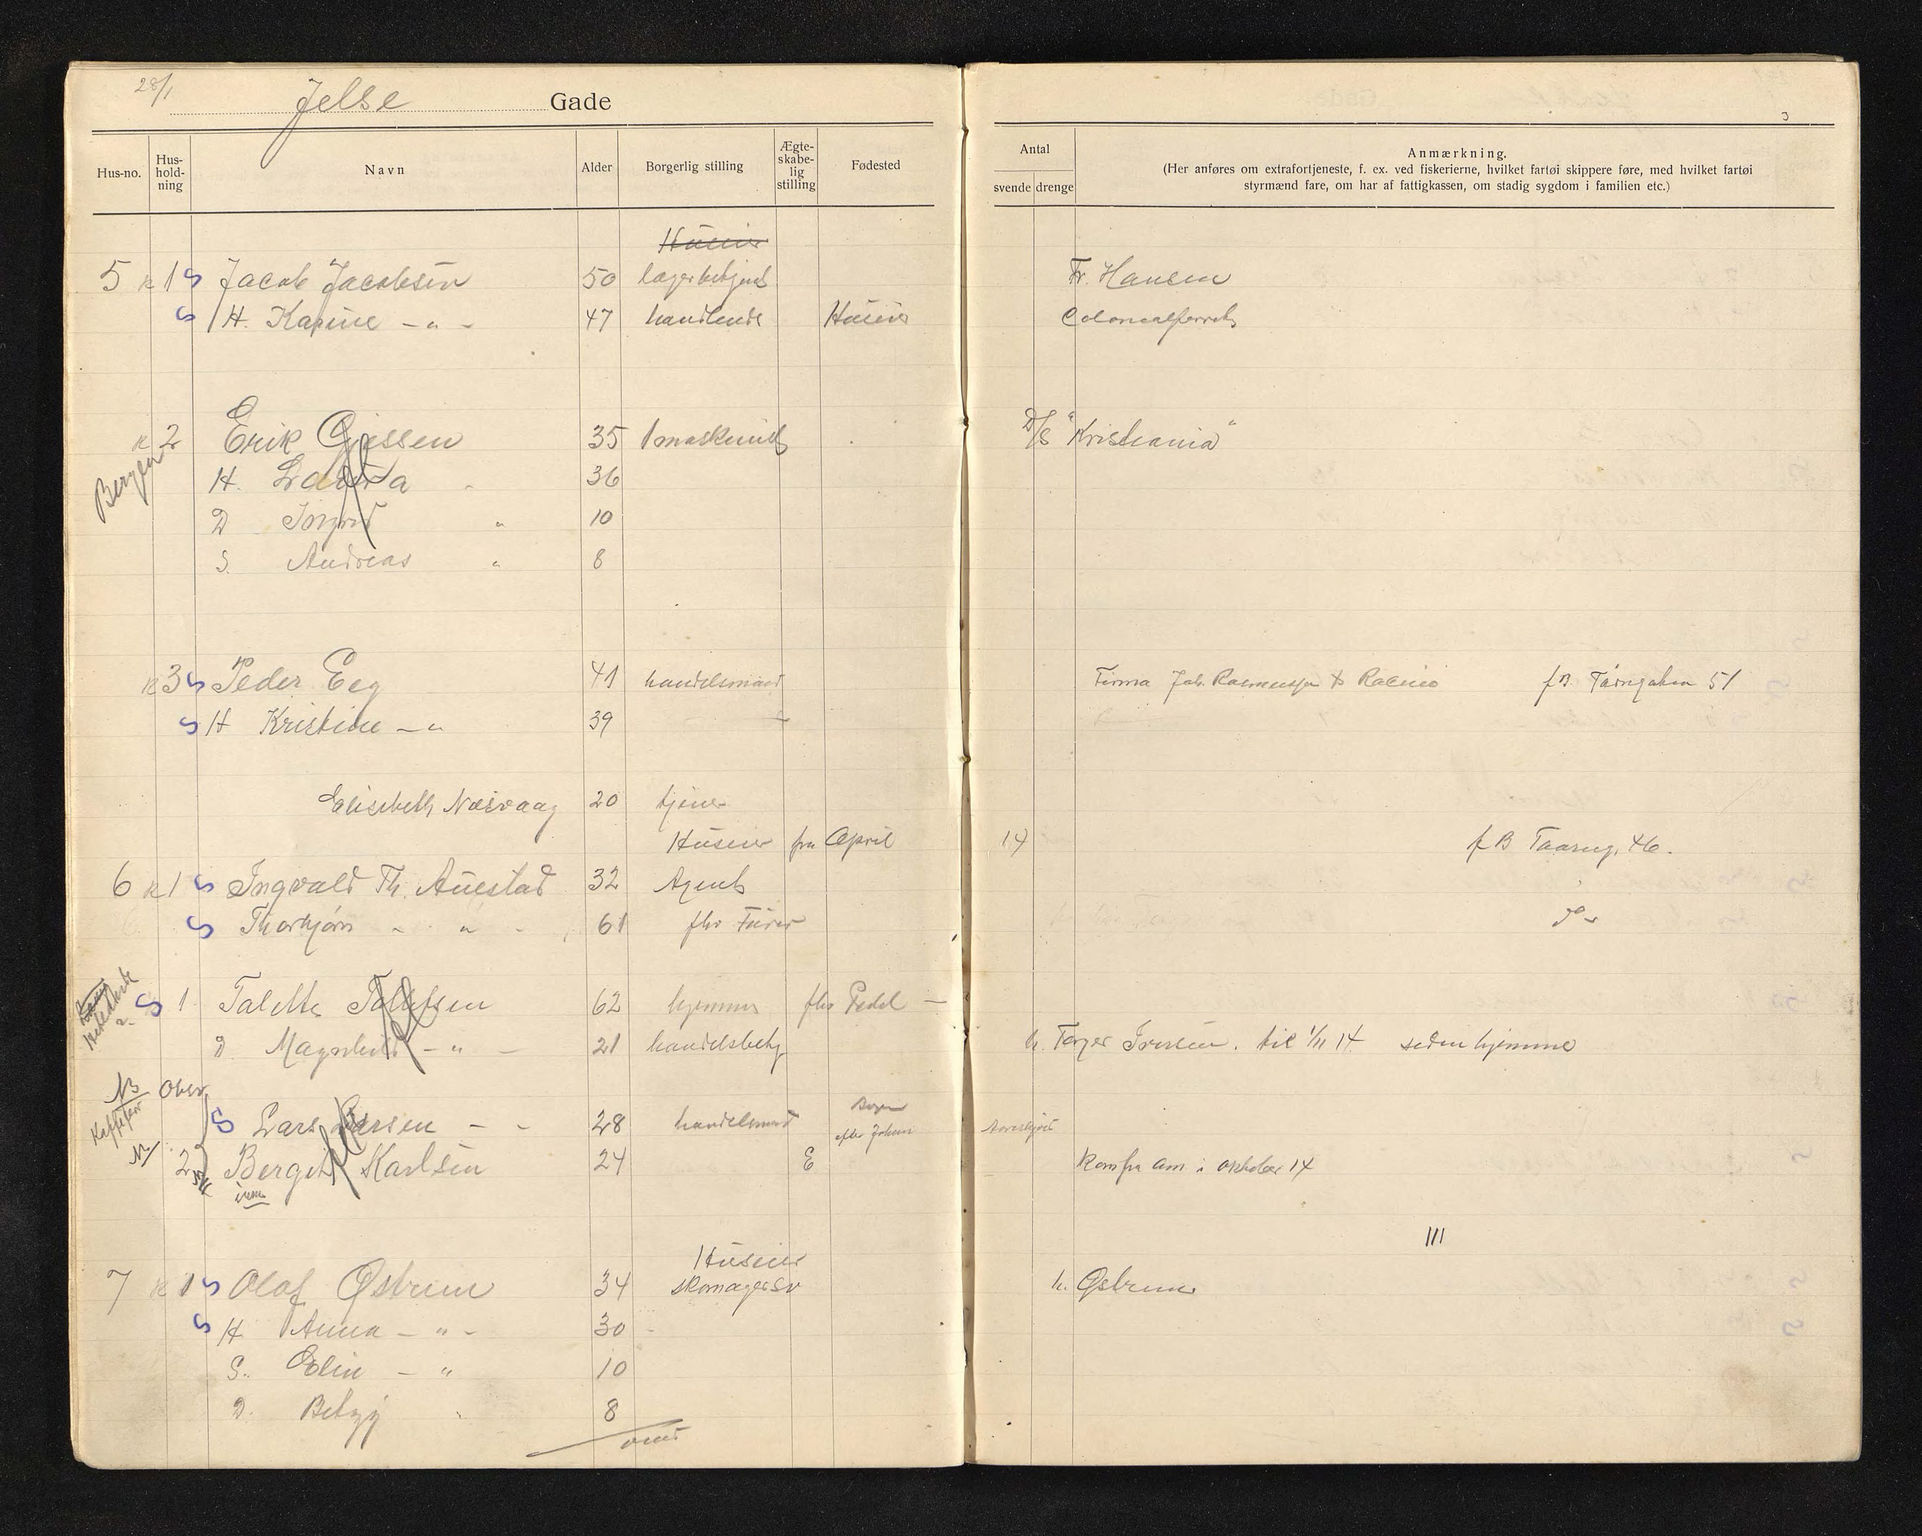 28/1 Jelse Gade
3
Hus-no. Hus-hold-ning Navn Alder Borgerlig stilling Ægte-skabe-lig stilling Fødested
Antal
svende drenge
Anmærkning.
(Her anføres om extrafortjeneste, f. ex. ved fiskerierne, hvilket fartøi skippere føre, med hvilket fartøi
styrmænd fare, om har af fattigkassen, om stadig sygdom i familien etc.)
Huseier
5 k 1 S Jacob Jacobsen 50 lagerbetjent Fr. Hansen
S H. Karine — " — 47 handlende Huseier Colonialforretn
k 2 Erik Gjessen 35 1 maskinist D/S "Kristiania"
Bergen
H. 36
D Ingrid " 10
S. Andreas " 8
k 3 S Peder Eeg 41 handelsmand Firma Joh. Rasmussen & Racine f B Taarngaten 51
S H Kristine — " 39
Elisebeth Næsvaag 20 tjener
Huseier fra April 14 f B Taarng. 46.
6 k 1 S Ingvald Th. Auestad 32 Agent
S Thorbjørn " " 61 fhv Fører
S 1 Talette Tollefsen 62 hjemme fhv Pedel —
D. Magnhild — " — 21 handelsbetj h. Torger Iversen. til 1/11 14 siden hjemme
NB
S Lars Larsen — — 28 handelsmand
2 Bergit Karlsen 24 E Kom fra Am. i oktober 14
III
Huseier
7 k 1 S Olaf Østrem 34 skomagersv h. Østrem
S H Anna — " — 30
S. Elin — " 10
D. Betzy " 8
vend